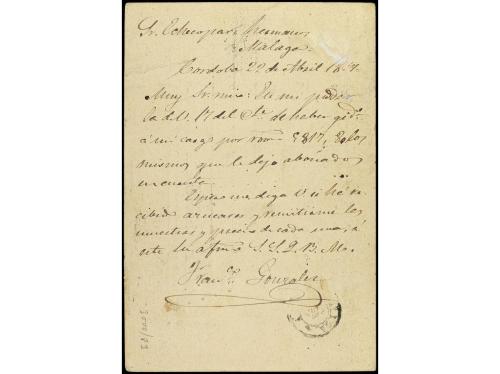 Sr. Echecopar y Hermano
Málaga.
Cordoba 29 de Abril 187
Muy Sr. mio: En mi poder
la de V. 17 del Cte. de haber gido
á mi cargo por rvon 3817, 80 los
mismos que le dejo abonados
en cuenta.
Espero me diga V si há re-
cibido azucares y remitirme las
muestras y precio de cada una, á
este su afmo S. S. Q. B. M.
Franco. Gonzalez